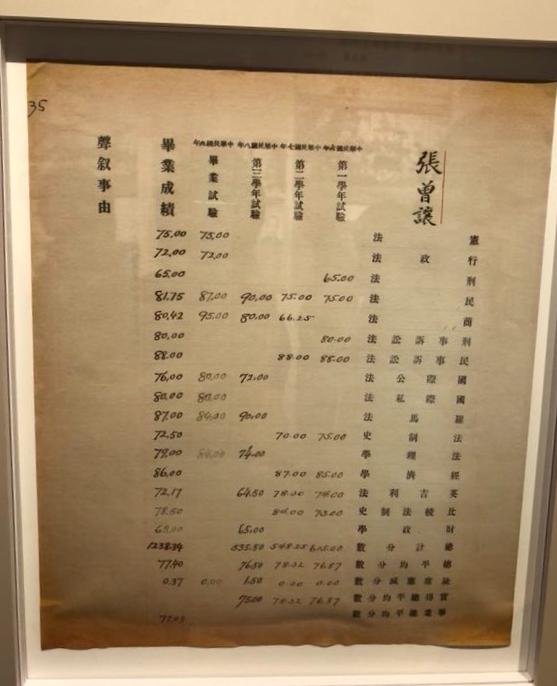 35
張曾讓
中華民國六年 第一學年試驗
中華民國七年 第二學年試驗
中華民國八年 第三學年試驗
中華民國九年 畢業試驗
畢業成績
聲叙事由
憲法 75.00 75.00
行政法 72.00 72.00
刑法 65.00 65.00
民法 75.00 75.00 90.00 87.00 81.75
商法 66.25 80.00 95.00 80.42
刑事訴訟法 80.00 80.00
民事訴訟法 88.00 88.00 88.00
國際公法 72.00 80.00 76.00
國際私法 80.00 80.00
羅馬法 90.00 84.00 87.00
法制史 75.00 70.00 72.50
法理學 74.00 84.00 79.00
經濟學 85.00 87.00 86.00
英吉利法 74.00 78.00 64.50 72.17
比較法制史 73.00 84.00 78.50
財政學 65.00 65.00
總計分數 615.00 548.25 535.50 1238.34
總平均分數 76.87 78.32 76.50 77.40
缺席應減分數 0.00 0.00 1.50 0.00 0.37
實得總平均分數 76.87 78.32 75.00
畢業總平均分數 77.03